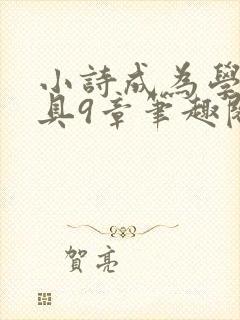 小詩成為學
具9章筆趣閣
賀亮